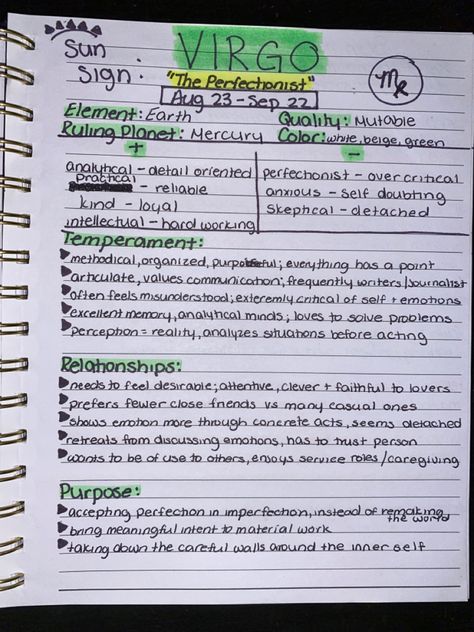 Sun Sign: VIRGO
"The Perfectionist"
Aug 23 - Sep 22
Element: Earth Quality: Mutable
Ruling Planet: Mercury Color: white, beige, green
+ -
analytical - detail oriented perfectionist - over critical
practical - reliable anxious - self doubting
kind - loyal skeptical - detached
intellectual - hard working
Temperament:
methodical, organized, purposeful; everything has a point
articulate, values communication; frequently writers/journalist
often feels misunderstood; exteremly critical of self + emotions
excellent memory, analytical minds; loves to solve problems
perception = reality, analyzes situations before acting
Relationships:
needs to feel desirable; attentive, clever + faithful to lovers
prefers fewer close friends vs many casual ones
shows emotion more through concrete acts, seems detached
retreats from discussing emotions, has to trust person
wants to be of use to others, enjoys service roles/caregiving
Purpose:
accepting perfection in imperfection, instead of remaking the world
bring meaningful intent to material work
taking down the careful walls around the inner self